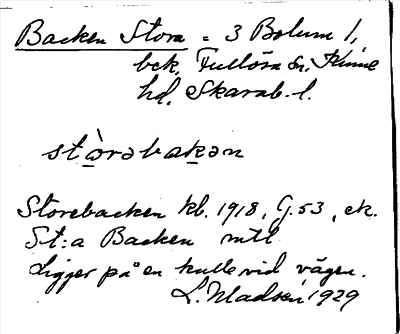 Backen Stora = 3 Bolum 1,
bck, Fullösa sn, Kinne
hd, Skarab. l.
stòrəbakən
Storebacken kb. 1918, G. 53, ek.
St:a Backen mtl
Ligger på en kulle vid vägen.
L. Madsén 1929